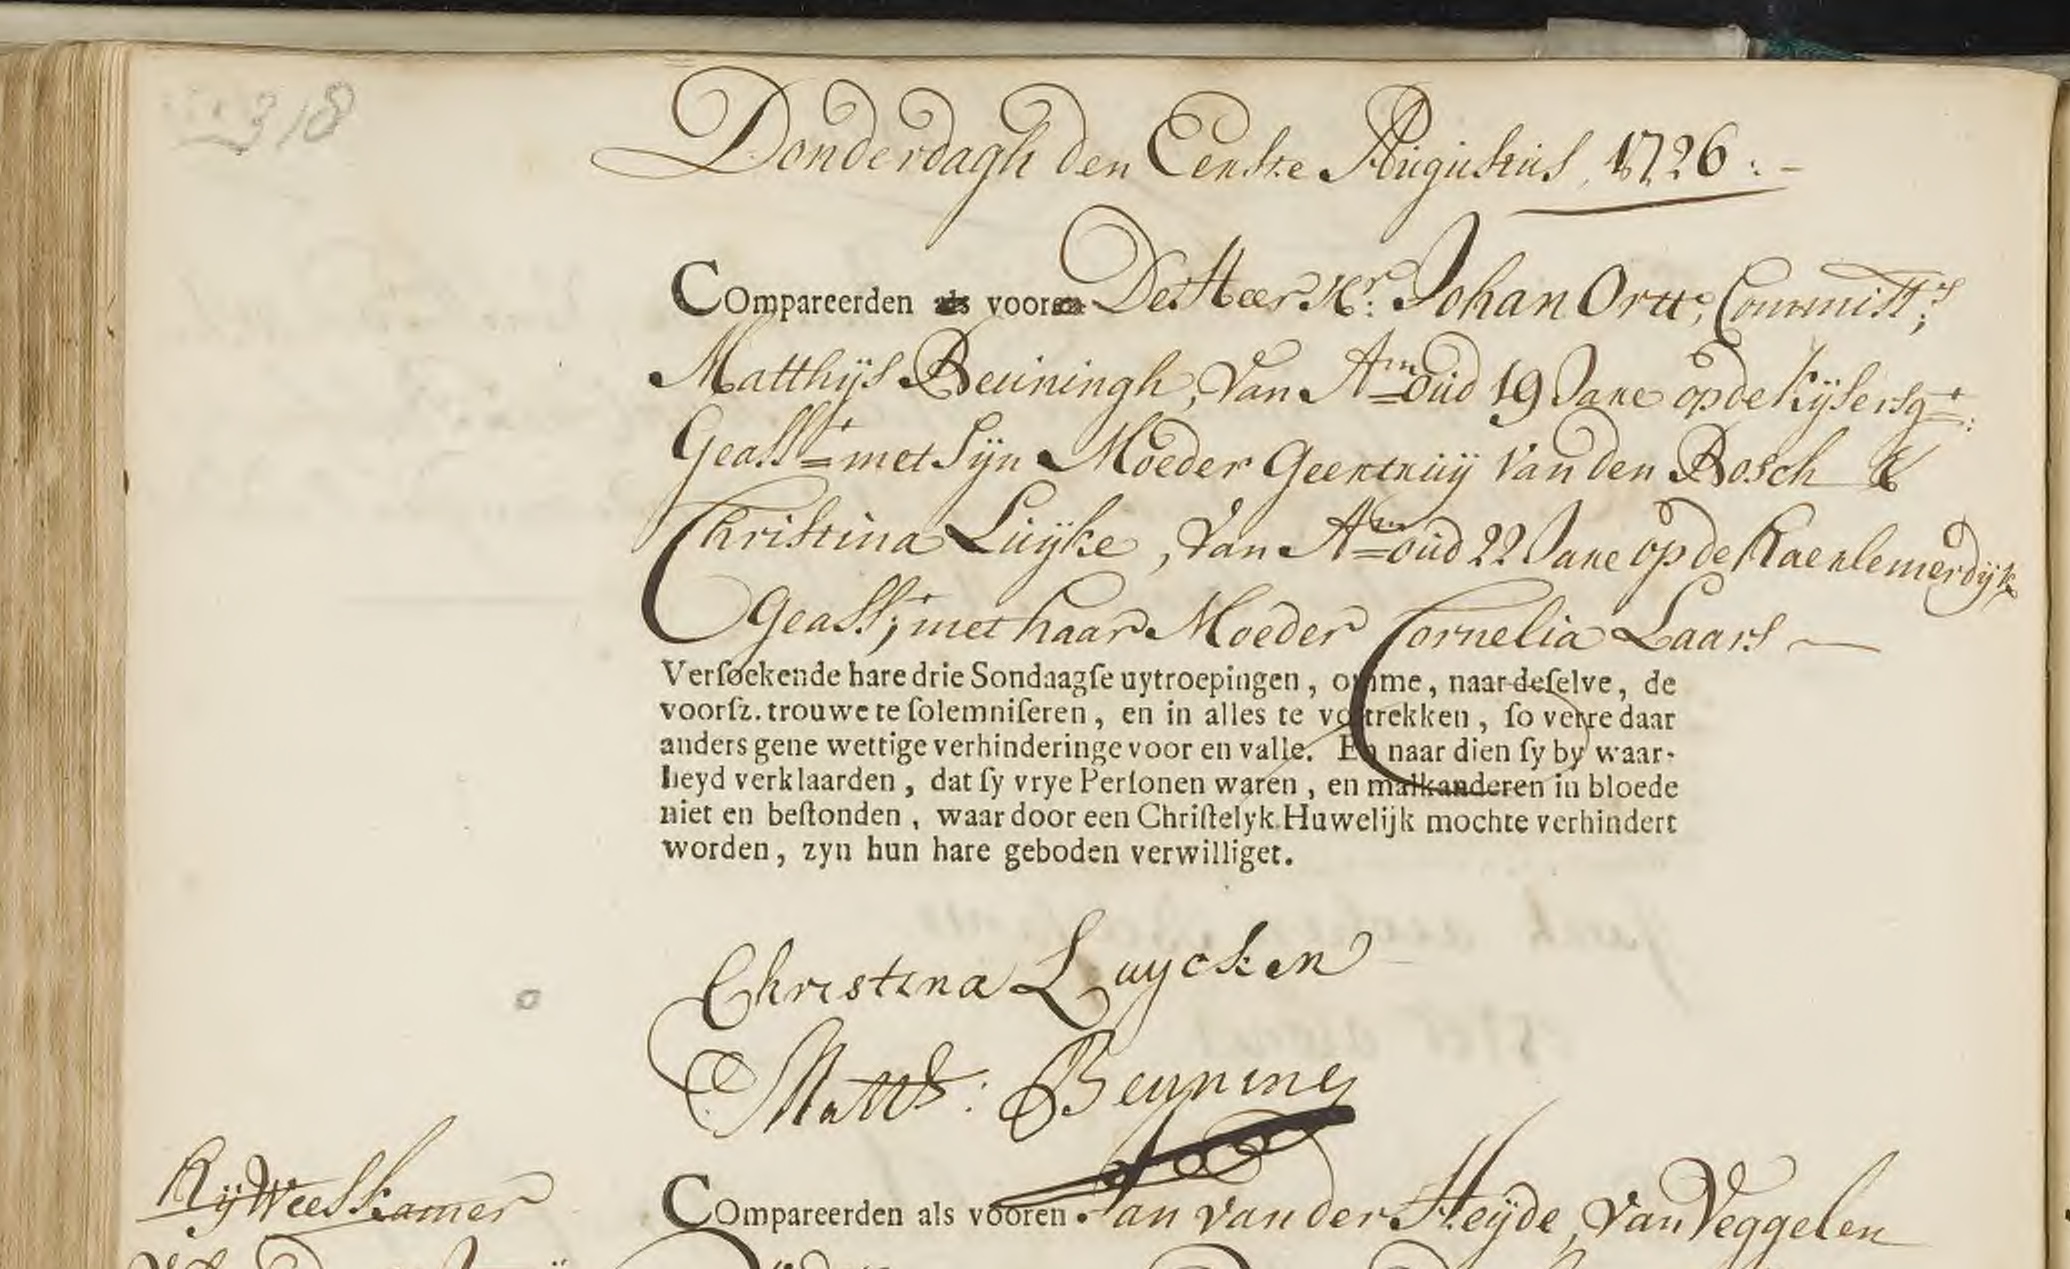 318
Donderdagh den Eerste Augustus, 1726:-
Compareerden als vooren De Heer Mr: Johan Ortt, Commissrs;
Matthijs Beuningh, van Am= oud 19 Jare op de Kijsersgt:
Geasst= met Sijn Moeder Geertruij van den Bosch &
Christina Luijke, van Am= oud 22 Jare op de Haerlemerdijk
Geasst; met haar Moeder Cornelia Laars —
Verſoekende hare drie Sondaagſe uytroepingen, omme, naar deſelve, de
voorſz. trouwe te ſolemniſeren, en in alles te voltrekken, ſo verre daar
anders gene wettige verhinderinge voor en valle. En naar dien ſy by waar-
heyd verklaarden, dat ſy vrye Perſonen waren, en malkanderen in bloede
niet en beſtonden, waar door een Chriſtelyk Huwelijk mochte verhindert
worden, zyn hun hare geboden verwilliget.
Christina Luycken
Matts: Beuning
Rij Weeskamer
Compareerden als vooren Jan van der Heijde, van Veggelen